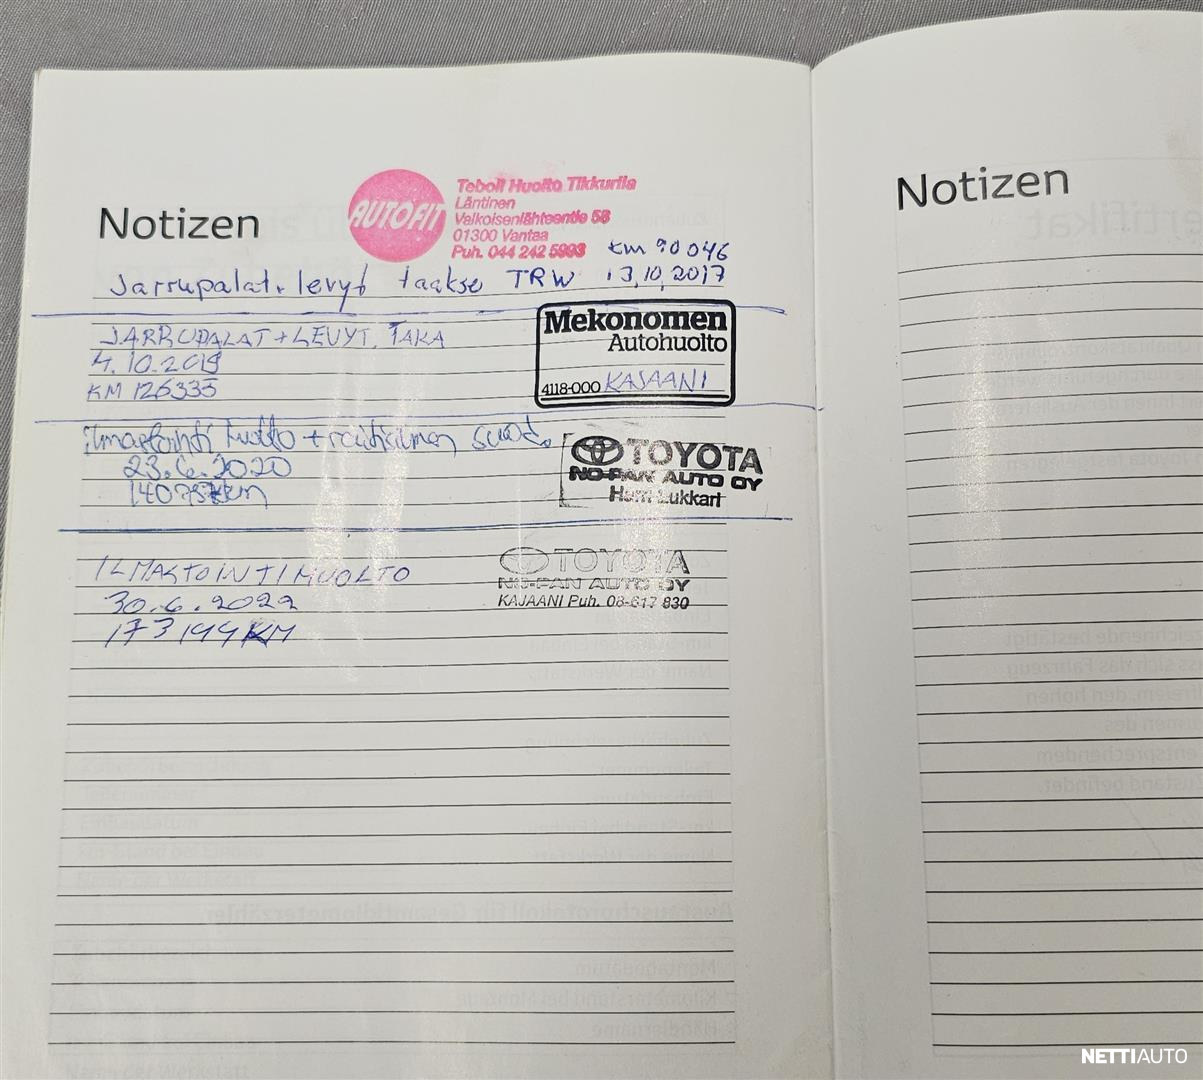 Notizen
AUTOFIT
Teboil Huolto Tikkurila
Läntinen
Valkoisenlähteentie 58
01300 Vantaa
Puh. 044 242 5993
km 90046
Jarrupalat + levyt taakse TRW 13.10.2017
JARRUPALAT + LEVYT, TAKA
4.10.2019
KM 126335
Mekonomen
Autohuolto
4118-000 KAJAANI
ilmastointi huolto + raitisilman suod.
23.6.2020
km
TOYOTA
NO-PAN AUTO OY
Harri Lukkari
ILMASTOINTIHUOLTO
30.6.2022
173199 KM
TOYOTA
NO-PAN AUTO OY
KAJAANI Puh. 08-617 830
Notizen
NETTIAUTO